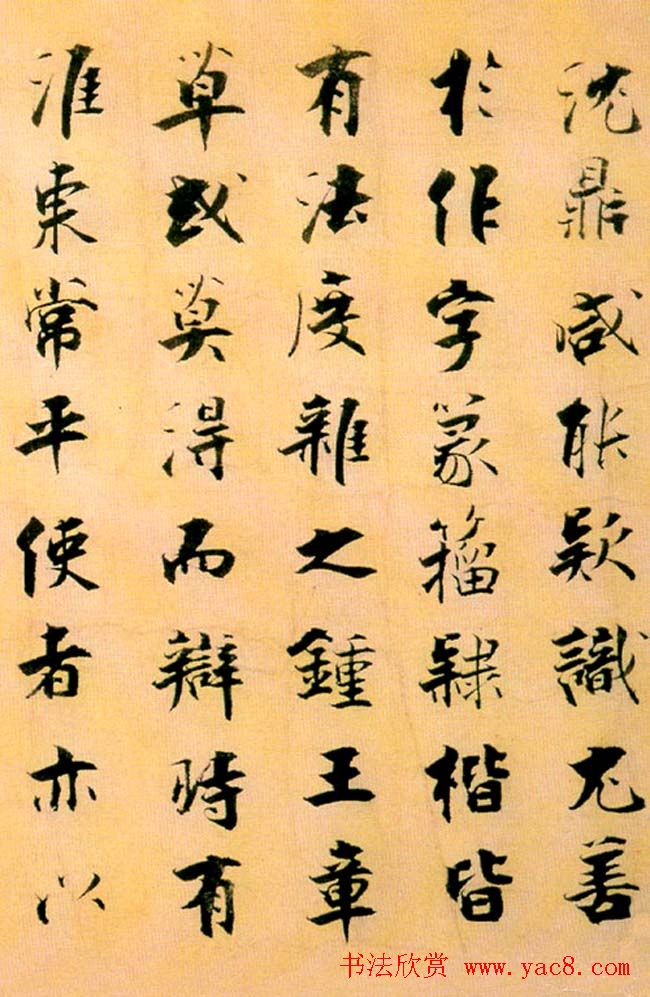 沈鼎咸能款識尤善
於作字篆籀隸楷皆
有法度雜之鍾王章
草或莫得而辯時有
淮東常平使者亦以
书法欣赏 www.yac8.com